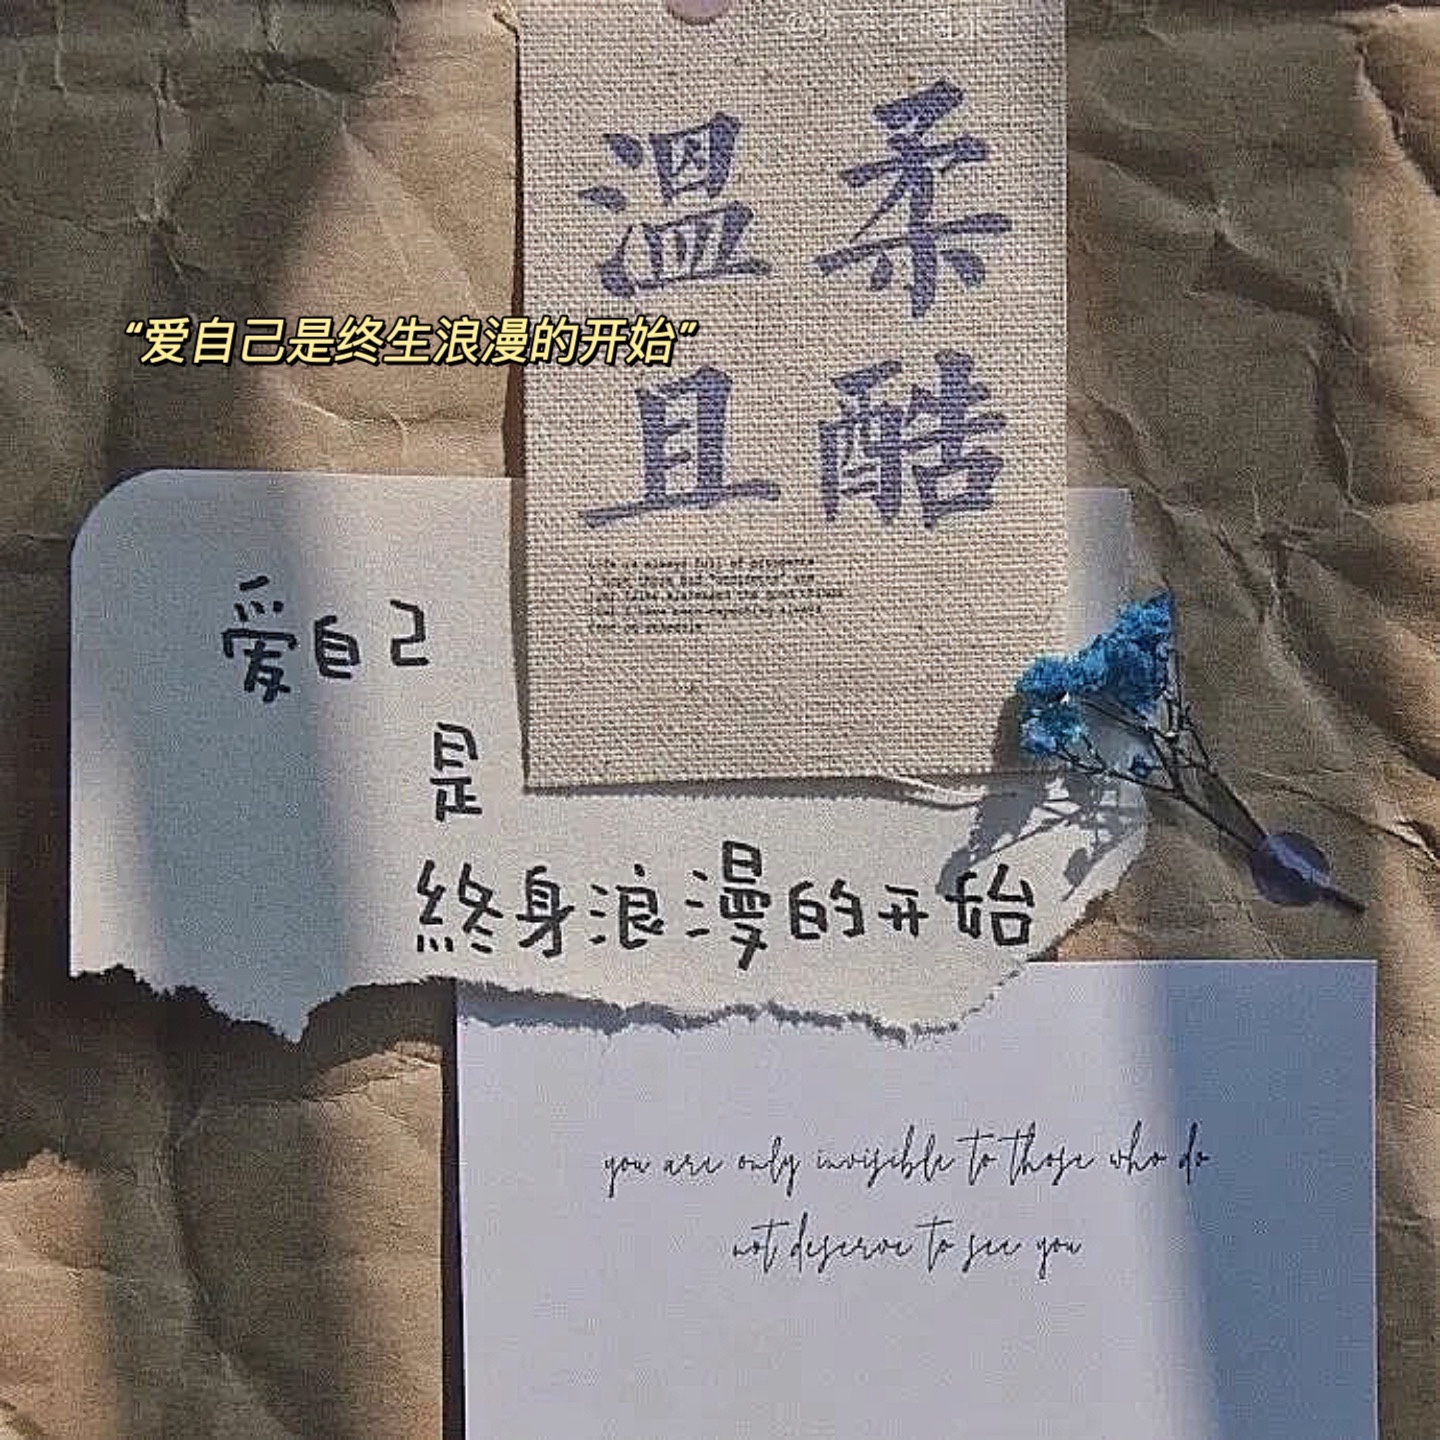 溫柔
且酷
“爱自己是终生浪漫的开始”
Life is always full of
爱自己
是
終身浪漫的开始
you are only invisible to those who do
not deserve to see you